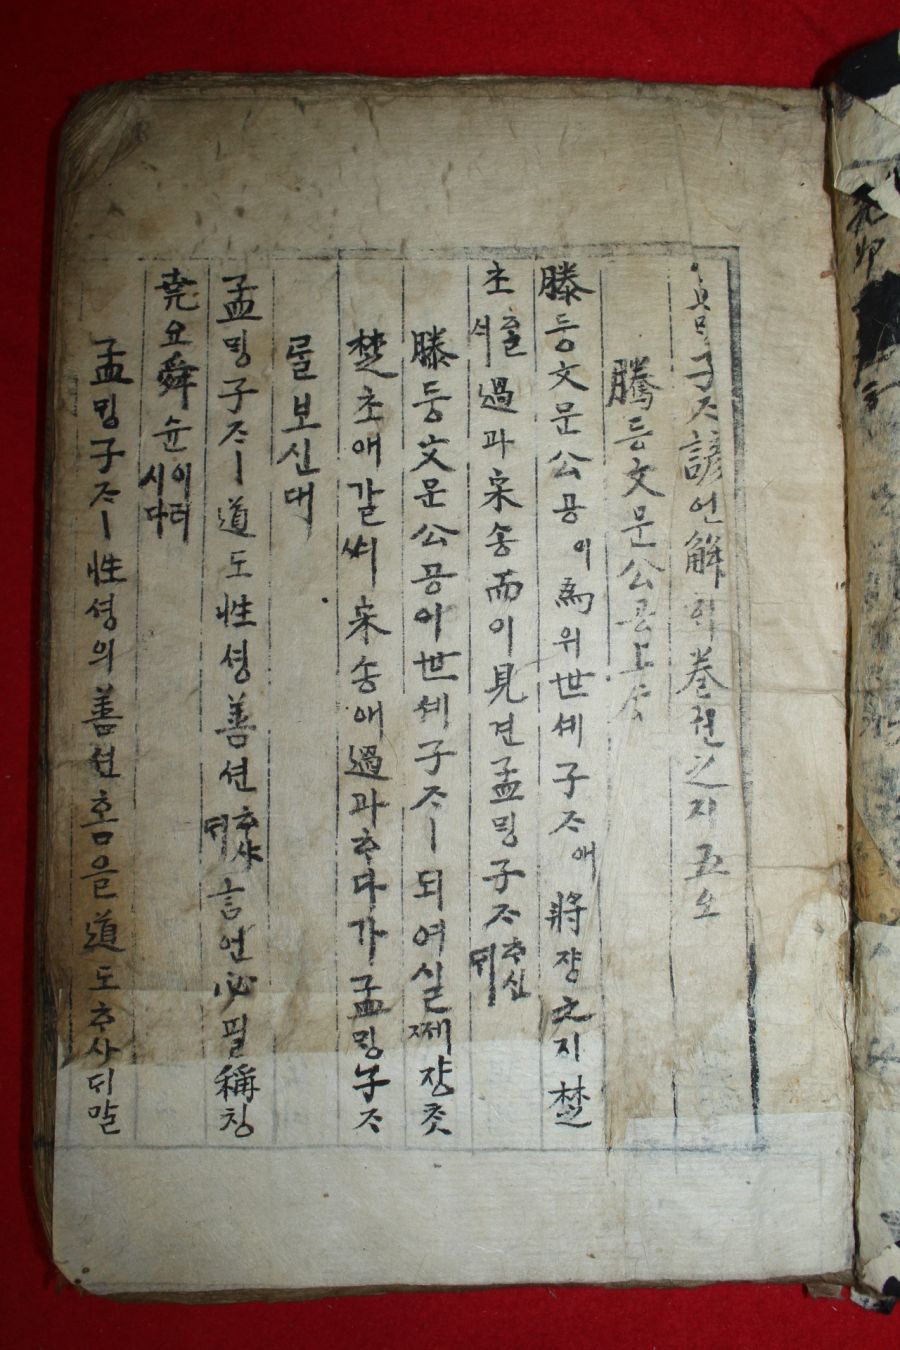 孟ᄆᆡᆼ子ᄌᆞ諺언解ᄒᆡ卷권之지五오
滕등文문公공上샹
滕등文문公공이爲위世셰子ᄌᆞ애將쟝之지楚
초ᄎᆞᆯ서過과宋송而이見견孟ᄆᆡᆼ子ᄌᆞᄒᆞ신ᄃᆡ
滕등文문公공이世셰子ᄌᆞㅣ되여실쩨쟝ᄎᆞᆺ
楚초애갈ᄊᆡ宋송애過과ᄒᆞ다가孟ᄆᆡᆼ子ᄌᆞ
ᄅᆞᆯ보신대
孟ᄆᆡᆼ子ᄌᆞㅣ道도性셩善션ᄒᆞ샤ᄃᆡ言언必필稱칭
堯요舜슌이러시다
孟ᄆᆡᆼ子ᄌᆞㅣ性셩의善션홈을道도ᄒᆞ샤ᄃᆡ말